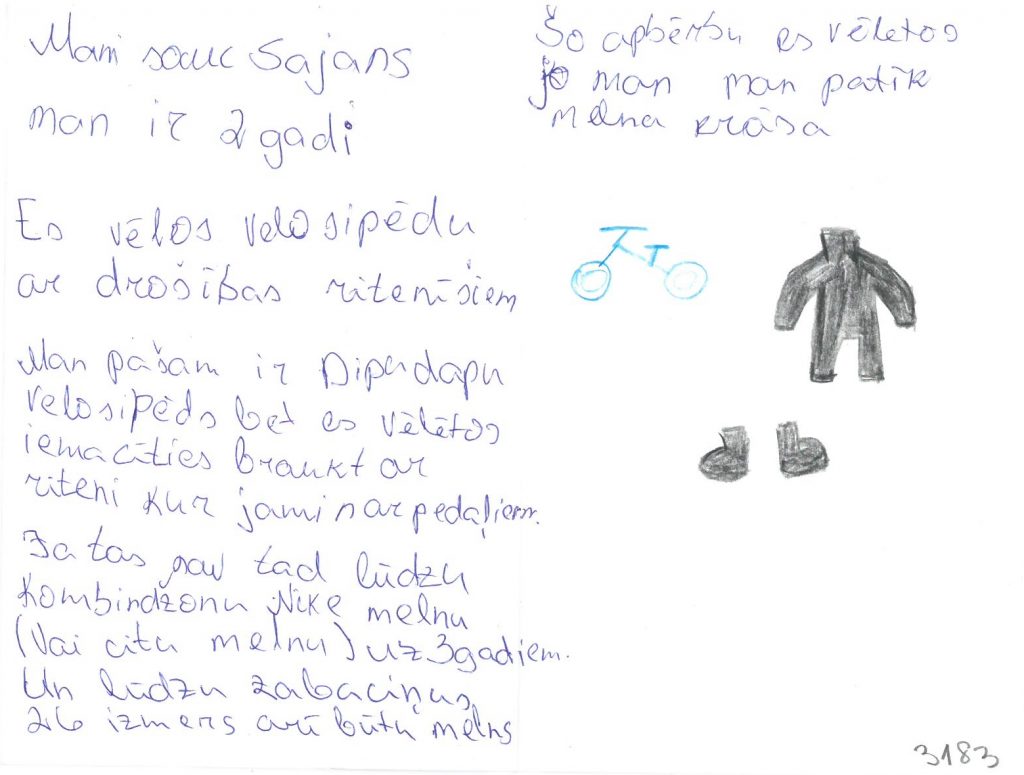 Mani sauc Sajans
man ir 2 gadi
Es vēlos velosipēdu
ar drošības ritenīšiem
Man pašam ir Dipudapu
velosipēds bet es vēlētos
iemacīties braukt ar
riteni kur jaminar pedaļiem.
Ja tas nav tad lūdzu
Kombindžonu Nike melnu
(Vai citu melnu) uz 3gadiem.
Un lūdzu zabaciņus
26 izmers arī būtu melns
Šo apbērbu es vēlētos
jo man man patīk
melna krāsa
3183